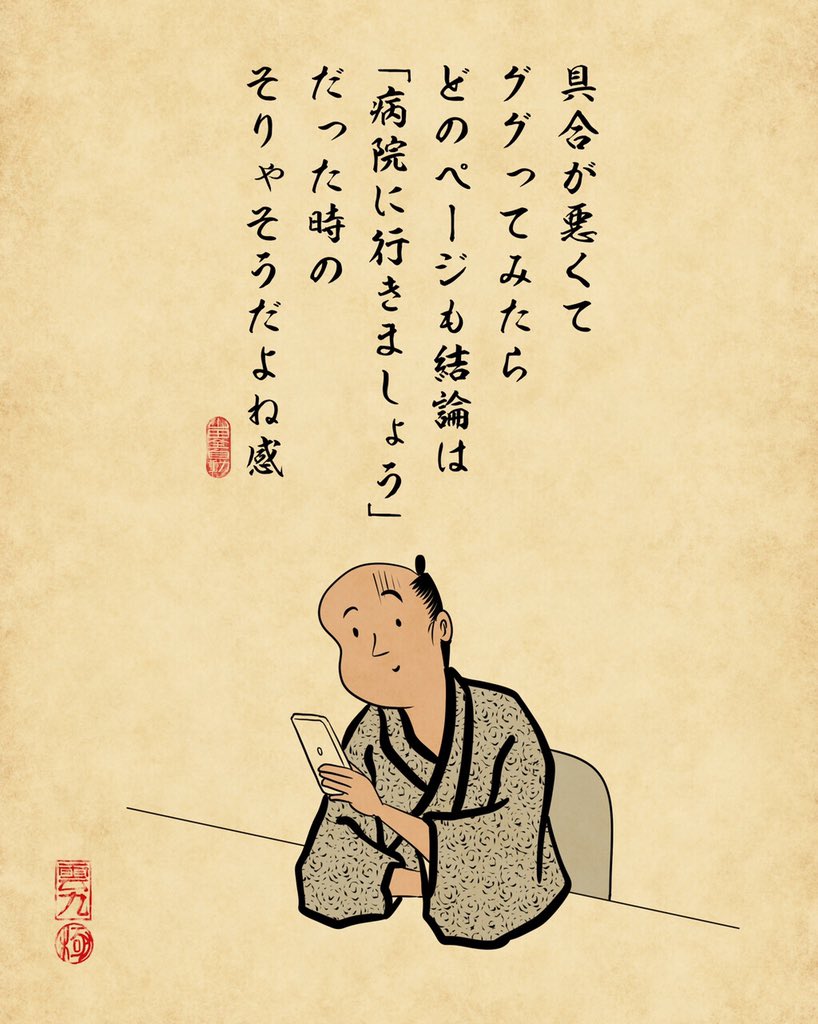 具合が悪くて
ググってみたら
どのページも結論は
「病院に行きましょう」
だった時の
そりゃそうだよね感